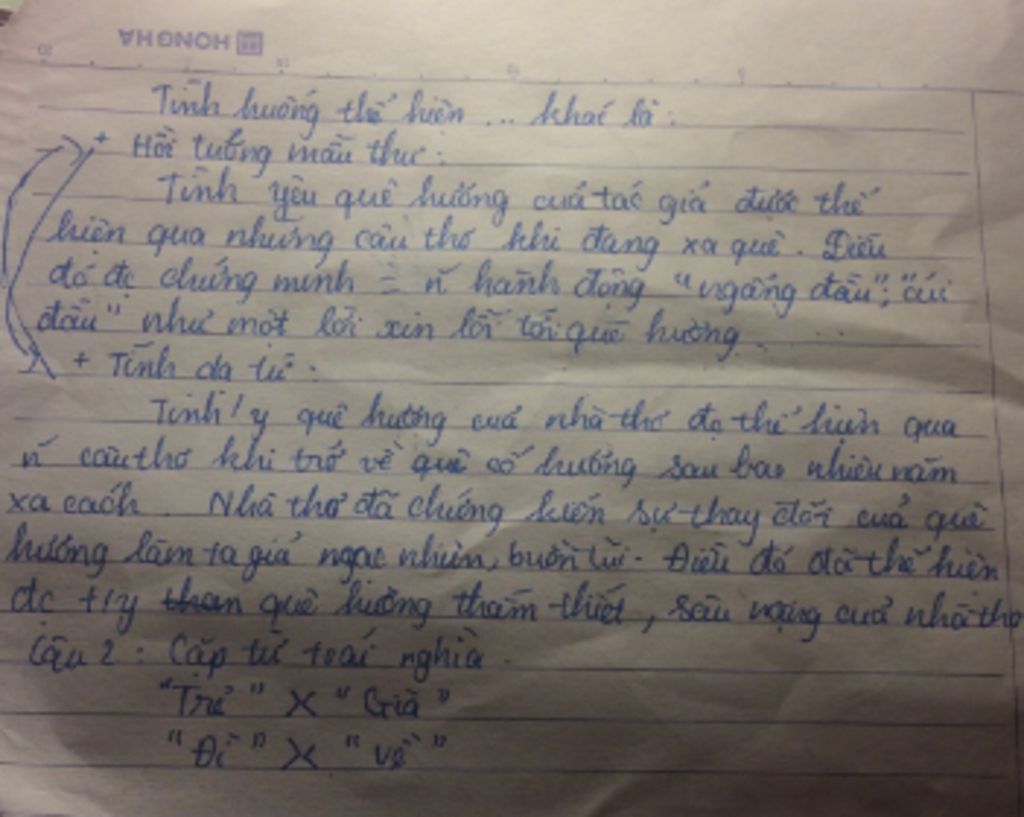 HONG HA
Tình huống thể hiện ... khác là:
+ Hồi hương ngẫu thư:
Tình yêu quê hương của tác giả được thể
hiện qua những câu thơ khi đang xa quê. Điều
đó đc chứng minh = n~ hành động "ngẩng đầu"; "cúi
đầu" như một lời xin lỗi tới quê hương.
+ Tĩnh dạ tứ:
Tình / y quê hương của nhà thơ đc thể hiện qua
n~ câu thơ khi trở về quê cố hương sau bao nhiêu năm
xa cách. Nhà thơ đã chứng kiến sự thay đổi của quê
hương làm ta giả ngạc nhiên, buồn tủi. Điều đó đã thể hiện
đc t/y quê hương thắm thiết, sâu nặng của nhà thơ
Câu 2: Cặp từ trái nghĩa.
"Trẻ" X "Già"
"Đi" X "Về"